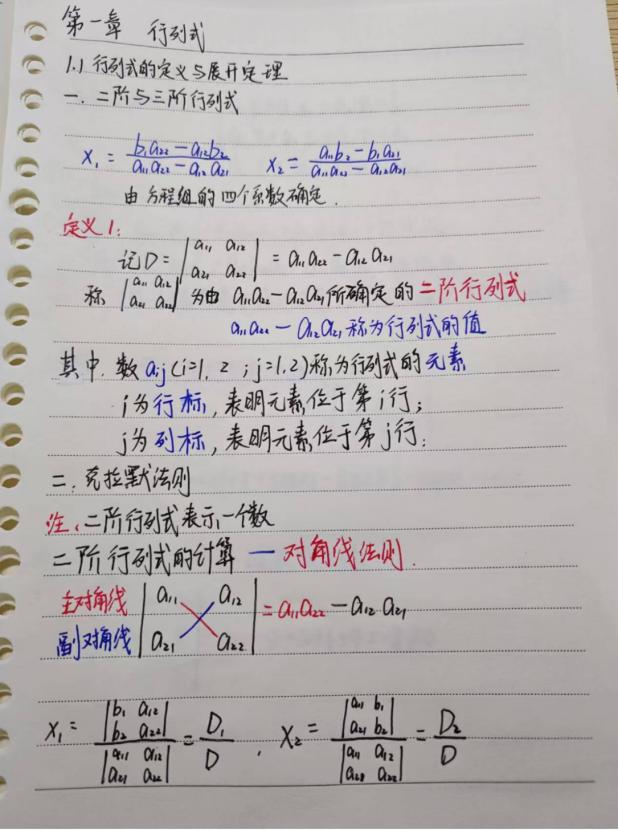 第一章 行列式
1.1 行列式的定义与展开定理
一. 二阶与三阶行列式
x₁ = (b₁a₂₂ − a₁₂b₂)/(a₁₁a₂₂ − a₁₂a₂₁) x₂ = (a₁₁b₂ − b₁a₂₁)/(a₁₁a₂₂ − a₁₂a₂₁)
由方程组的四个系数确定.
定义1:
记D = |a₁₁ a₁₂; a₂₁ a₂₂| = a₁₁a₂₂ − a₁₂a₂₁
称 |a₁₁ a₁₂; a₂₁ a₂₂| 为由 a₁₁a₂₂ − a₁₂a₂₁所确定的二阶行列式
a₁₁a₂₂ − a₁₂a₂₁ 称为行列式的值
其中, 数 aij (i=1, 2 ; j=1,2) 称为行列式的元素
i为行标, 表明元素位于第i行;
j为列标, 表明元素位于第j行;
二. 克拉默法则
注: 二阶行列式表示一个数
二阶行列式的计算 — 对角线法则.
主对角线
副对角线
|a₁₁ a₁₂; a₂₁ a₂₂| = a₁₁a₂₂ − a₁₂a₂₁
x₁ = |b₁ a₁₂; b₂ a₂₂| / |a₁₁ a₁₂; a₂₁ a₂₂| = D₁/D , x₂ = |a₁₁ b₁; a₂₁ b₂| / |a₁₁ a₁₂; a₂₁ a₂₂| = D₂/D